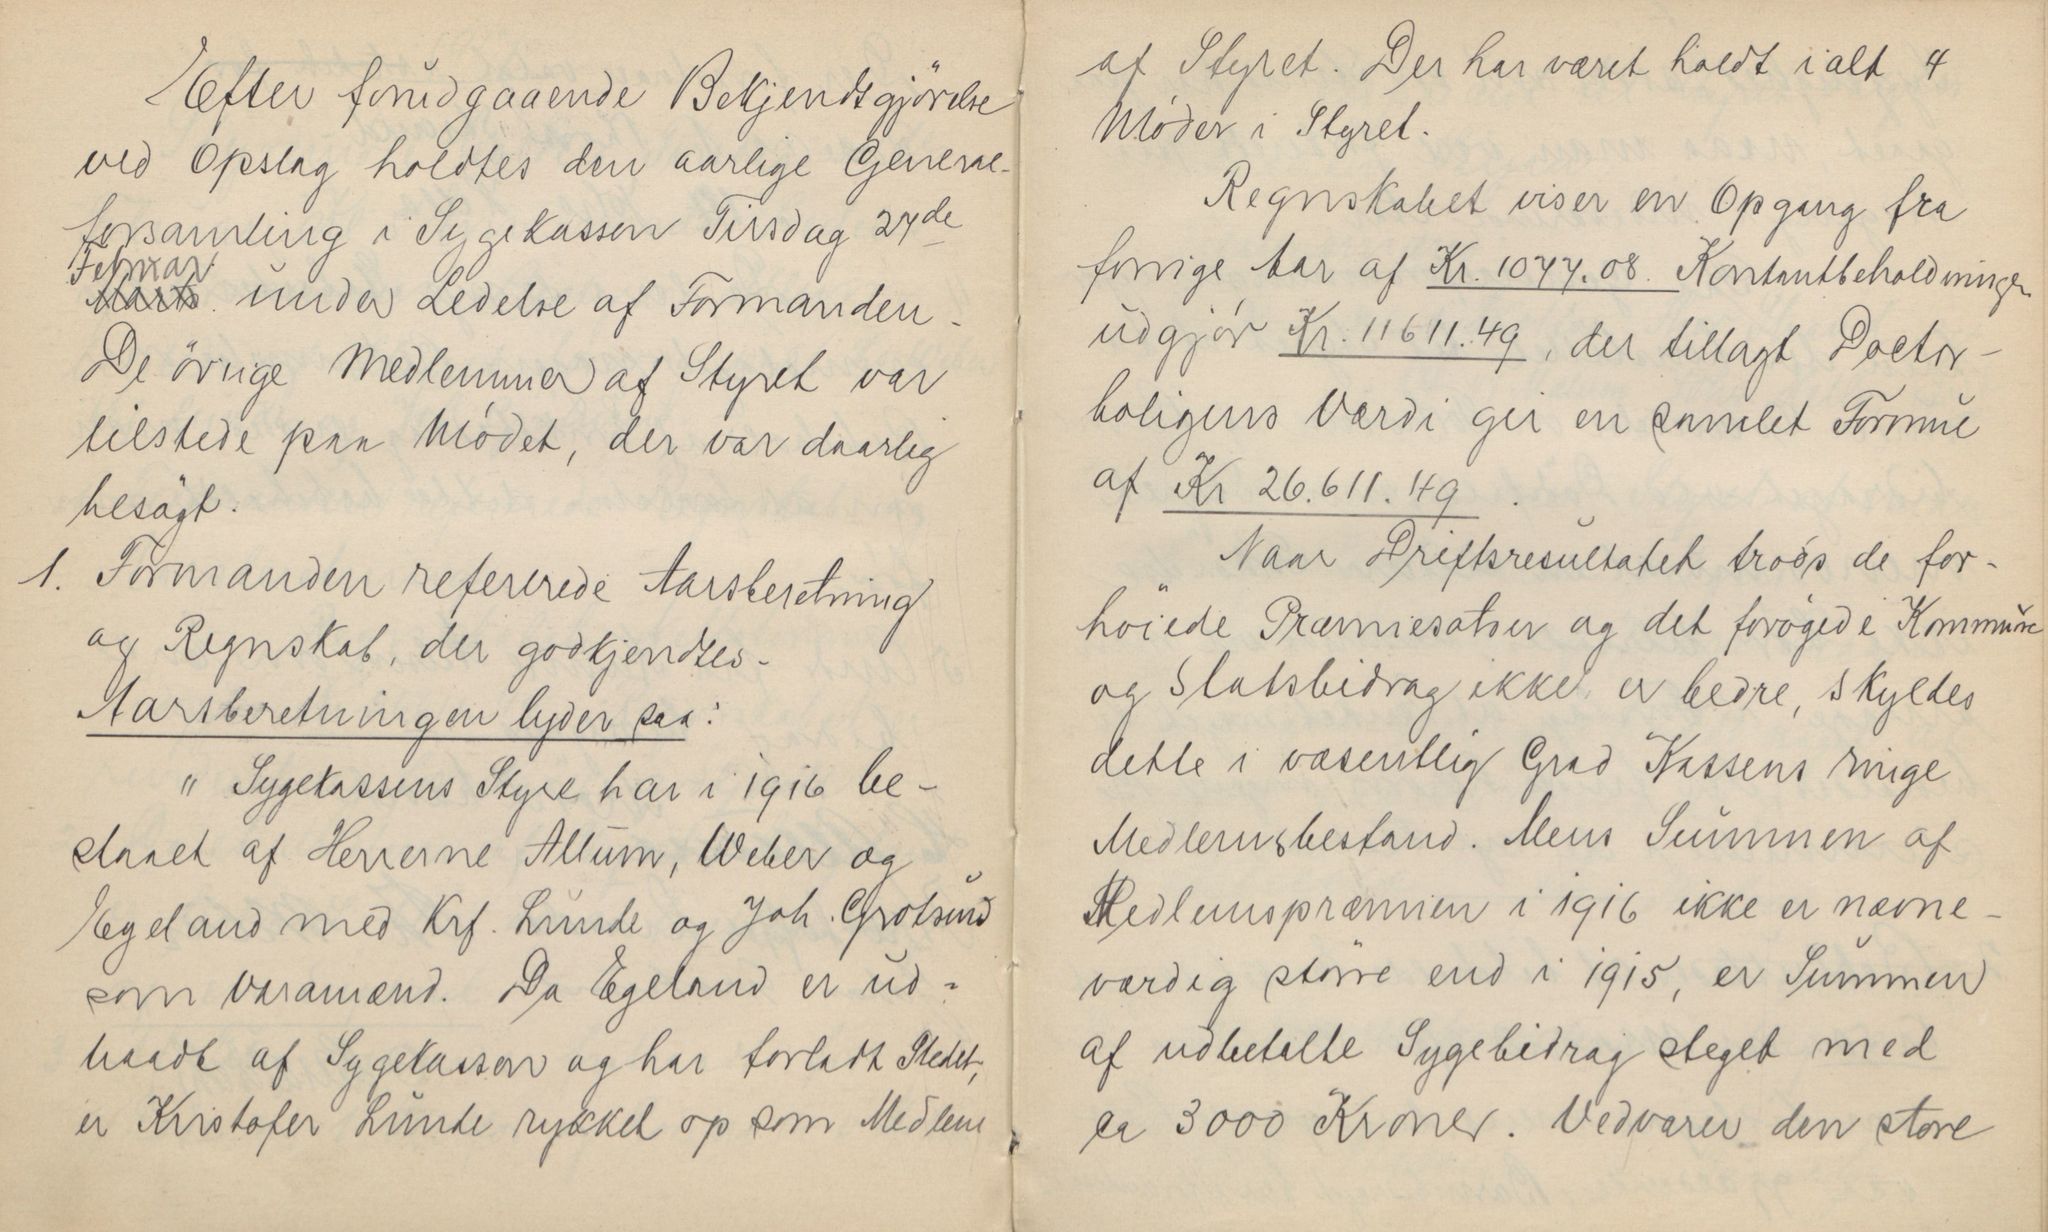 Efter forudgaaende Bekjendtgjörelse
ved Opslag holdtes den aarlige General-
forsamling i Sygekassen Tirsdag 27de
Februar
Marts. under Ledelse af Formanden.
De övrige Medlemmer af Styret var
tilstede paa Mödet, der var daarlig
besögt.
1. Formanden refererede Aarsberetning
og Regnskab, der godkjendtes.
Aarsberetningen lyder saa:
" Sygekassens Styre har i 1916 be-
staaet af Herrerne Altum, Weber og
Egeland med Krf. Lunde og Joh. Grotsund
som Varamænd. Da Egeland er ud-
traadt af Sygekassen og har forladt Stedet,
er Kristofer Lunde rykket op som Medlem
af Styret. Der har været holdt ialt 4
Möder i Styret.
Regnskabet viser en Opgang fra
forrige Aar af Kr. 1077.08. Kontantbeholdningen
udgjör Kr. 11611.49, der tillagt Doctor-
boligens Værdi gir en samlet Formue
af Kr 26.611.49.
Naar Driftsresultatet trods de for-
höiede Præmiesatser og det forögede Kommune
og Statsbidrag ikke er bedre, skyldes
dette i væsentlig Grad Kassens ringe
Medlemsbestand. Mens Summen af
Medlemspræmien i 1916 ikke er nævne-
værdig större end i 1915, er Summen
af udbetalte Sygebidrag steget med
ca 3000 Kroner. Vedvarer den store